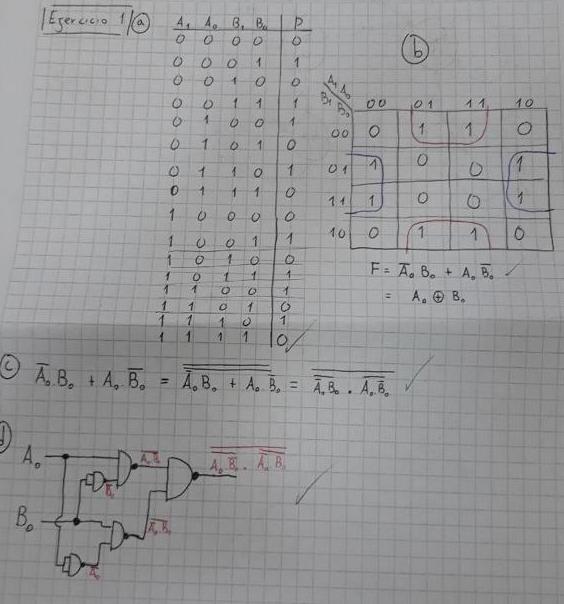 Ejercicio 1 a
A₁ A₀ B₁ B₀ P
0 0 0 0 0
0 0 0 1 1
0 0 1 0 0
0 0 1 1 1
0 1 0 0 1
0 1 0 1 0
0 1 1 0 1
0 1 1 1 0
1 0 0 0 0
1 0 0 1 1
1 0 1 0 0
1 0 1 1 1
1 1 0 0 1
1 1 0 1 0
1 1 1 0 1
1 1 1 1 0
b
A₁ A₀
B₁ B₀
00 01 11 10
00 0 1 1 0
01 1 0 0 1
11 1 0 0 1
10 0 1 1 0
F = A̅₀ B₀ + A₀ B̅₀
= A₀ ⊕ B₀
c A̅₀ B₀ + A₀ B̅₀ = \overline{\overline{A̅₀ B₀ + A₀ B̅₀}} = \overline{\overline{A̅₀ B₀} . \overline{A₀ B̅₀}}
d
A₀
B₀
\overline{A₀ B̅₀}
B̅₀
\overline{A̅₀ B₀}
A̅₀
\overline{\overline{A₀ B̅₀} . \overline{A̅₀ B₀}}